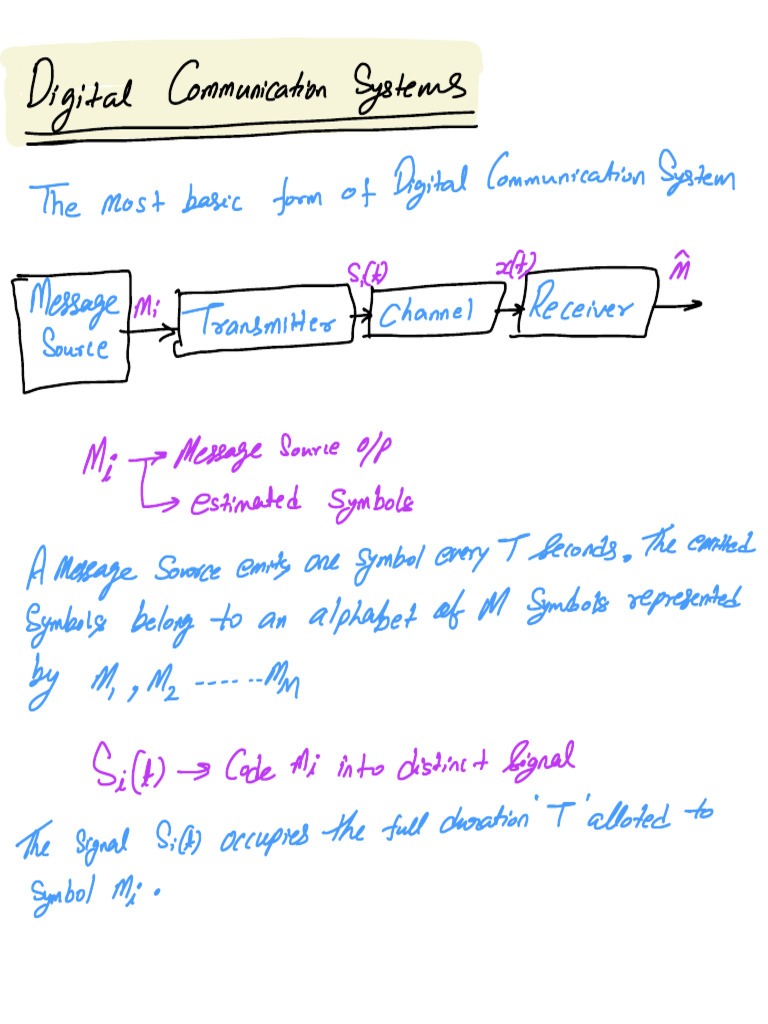 Digital Communication Systems
The most basic form of Digital Communication System
Message Source
Mi
Transmitter
Si(t)
Channel
x(t)
Receiver
M̂
Mi → Message Source o/p
→ estimated Symbols
A Message Source emits one symbol every T seconds. The emitted
Symbols belong to an alphabet of M Symbols represented
by M1, M2 ------ MM
Si(t) → Code Mi into distinct Signal
The Signal Si(t) occupies the full duration 'T' alloted to
Symbol Mi.